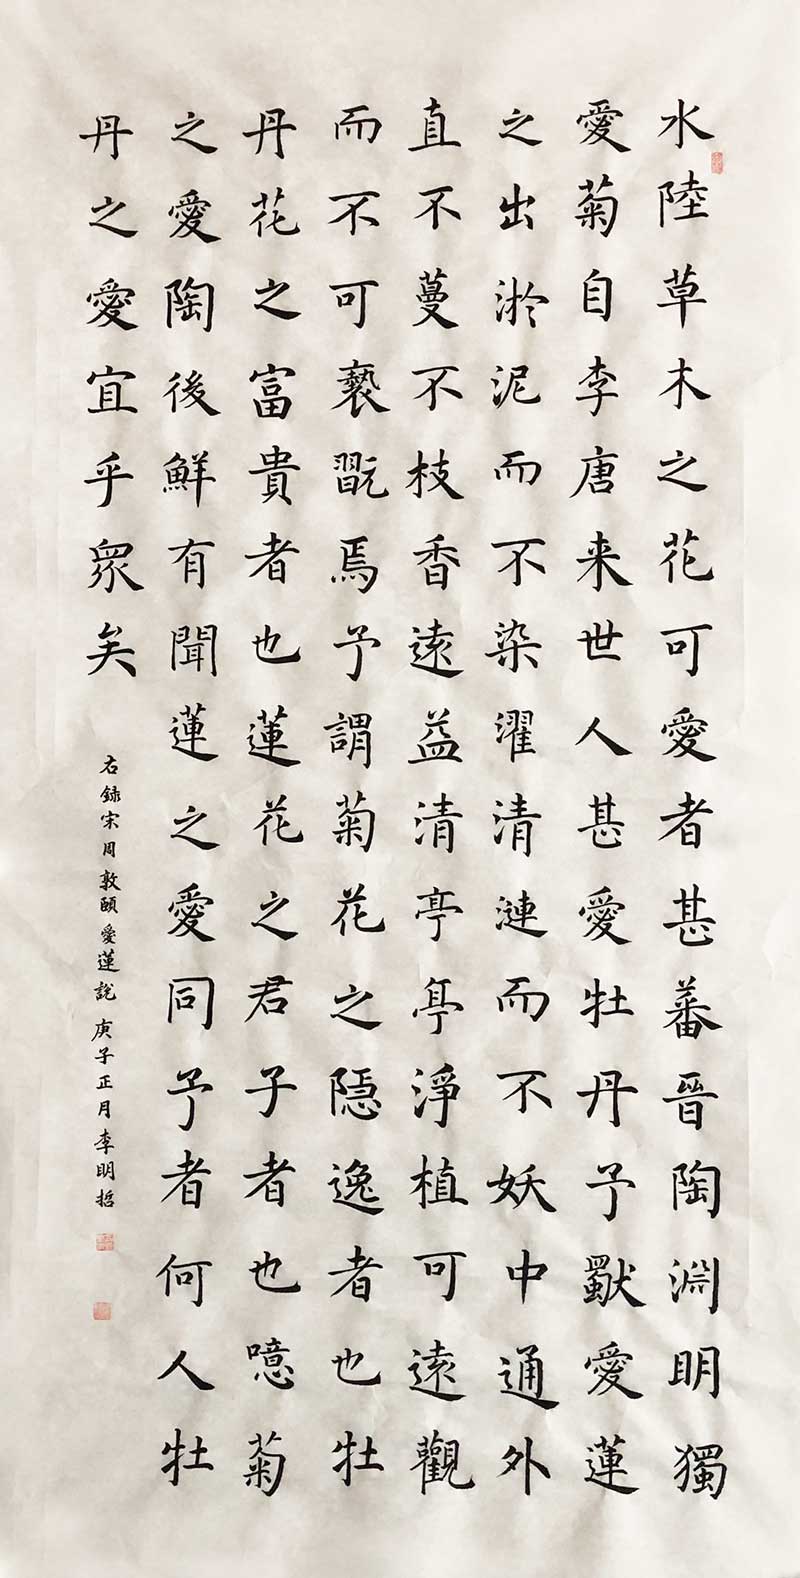 水陸草木之花可愛者甚蕃晉陶淵明獨
愛菊自李唐来世人甚愛牡丹予獨愛蓮
之出淤泥而不染濯清漣而不妖中通外
直不蔓不枝香遠益清亭亭淨植可遠觀
而不可褻翫焉予謂菊花之隐逸者也牡
丹花之富貴者也蓮花之君子者也噫菊
之愛陶後鮮有聞蓮之愛同予者何人牡
丹之愛宜乎眾矣
右錄宋周敦頤愛蓮說 庚子正月李明哲